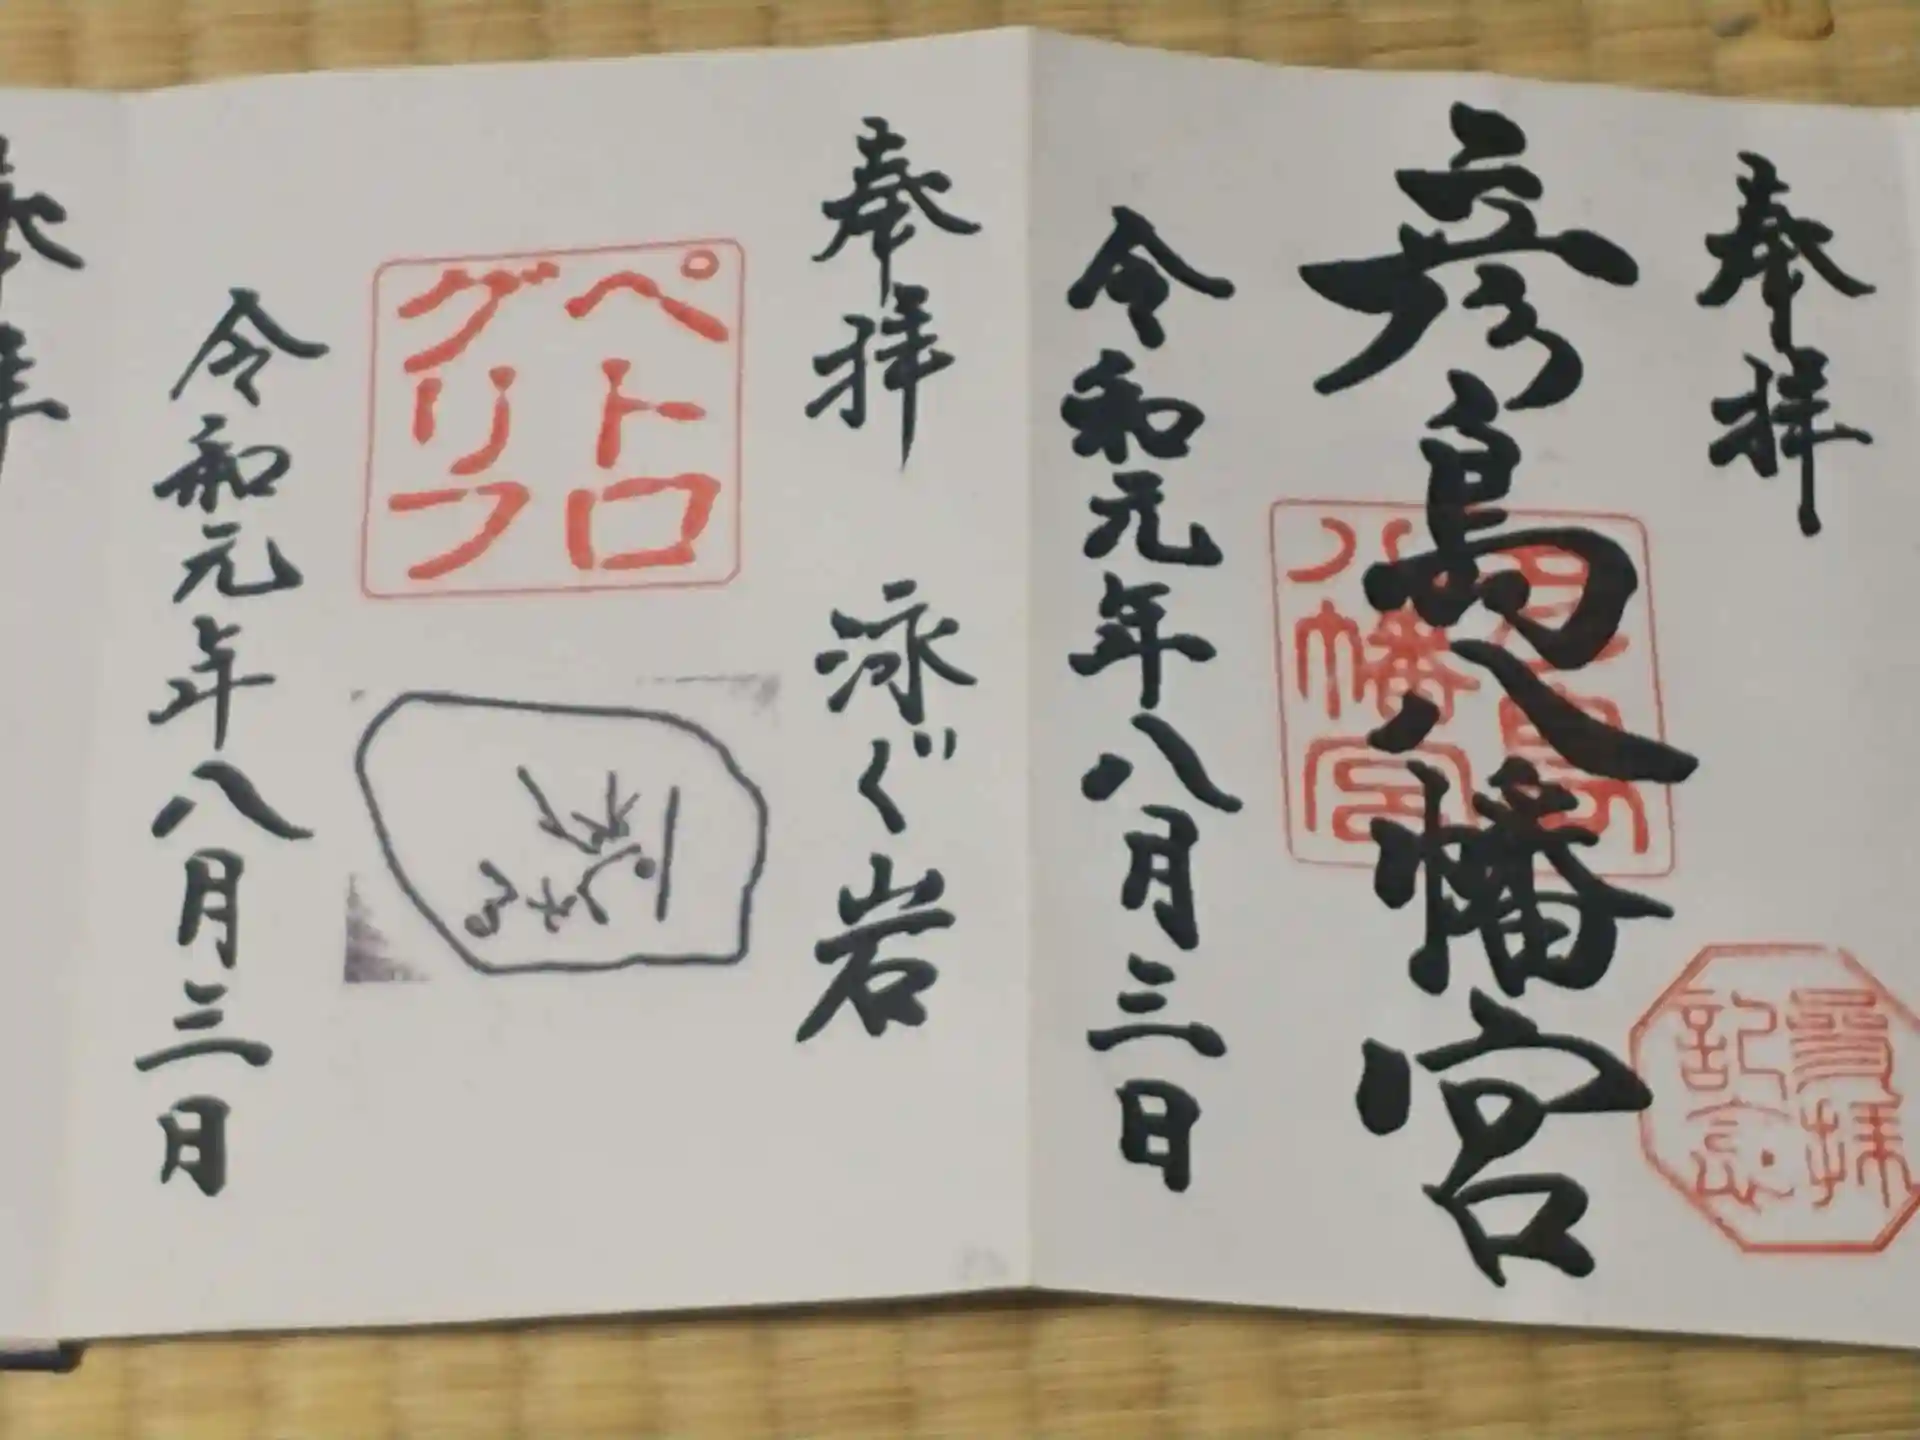 奉拝
彦島八幡宮
彦島
八幡宮
令和元年八月三日
参拝
記念
奉拝
泳ぐ岩
ペトロ
グリフ
令和元年八月三日